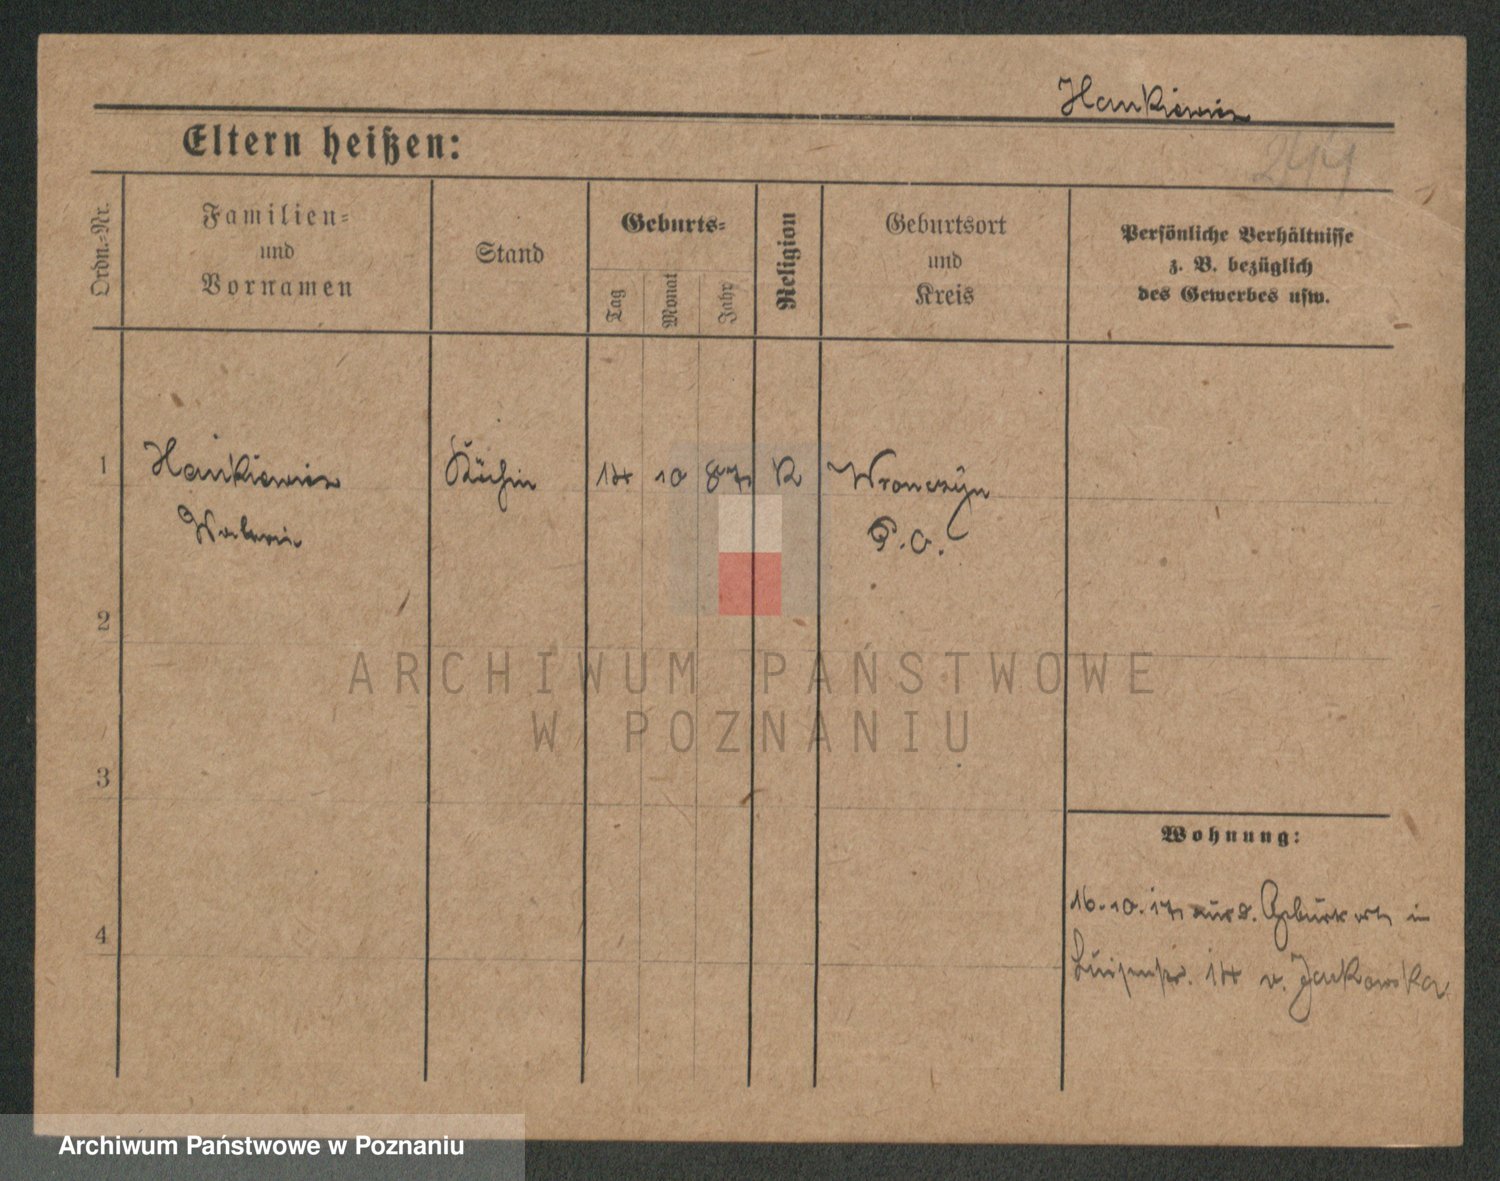 Hankiewicz
Eltern heißen:
244
Ordn.-Nr.
Familien-
und
Vornamen
Stand
Geburts-
Tag
Monat
Jahr
Religion
Geburtsort
und
Kreis
Persönliche Verhältnisse
z. B. bezüglich
des Gewerbes usw.
1
Hankiewicz
Valerie
Köchin
14
10
87
K
Wronczyn
P. O.
2
ARCHIWUM PAŃSTWOWE
W POZNANIU
3
Wohnung:
4
16.10.17 aus d. Geburtsort in
Luisenstr. 14 v. Jackowska
Archiwum Państwowe w Poznaniu